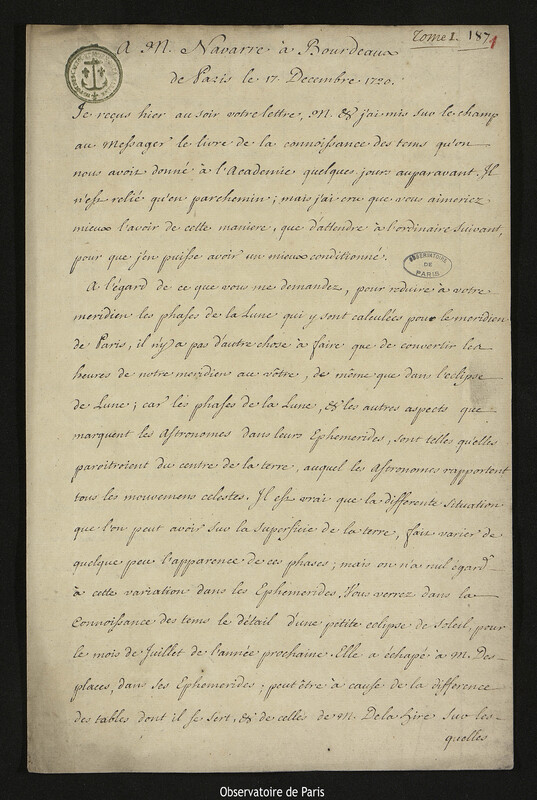 Tome I. 187
1
A M. Navarre à Bourdeaux
de Paris le 17. Decembre. 1720.
Je reçus hier au soir votre lettre, M. & j'ai mis sur le champ
au Messager le livre de la connoissance des tems qu'on
nous avoit donné à l'Academie quelques jours auparavant. Il
n'est relié qu'en parchemin; mais j'ai cru que vous aimeriez
mieux l'avoir de cette maniere, que d'attendre à l'ordinaire suivant,
pour que j'en puisse avoir un mieux conditionné.
OBSERVATOIRE
DE
PARIS
A l'égard de ce que vous me demandez, pour reduire à votre
meridien les phases de la Lune qui y sont calculées pour le meridien
de Paris, il n'y a pas d'autre chose à faire que de convertir les
heures de notre meridien au vôtre, de même que dans l'eclipse
de Lune; car les phases de la Lune, & les autres aspects que
marquent les Astronomes dans leurs Ephemerides, sont telles qu'elles
paroitroient du centre de la terre, auquel les Astronomes rapportent
tous les mouvemens celestes. Il est vrai que la differente situation
que l'on peut avoir sur la superficie de la terre, fait varier de
quelque peu l'apparence de ces phases; mais on n'a nul égard
à cette variation dans les Ephemerides. Vous verrez dans la
Connoissance des tems le détail d'une petite eclipse de Soleil, pour
le mois de Juillet de l'année prochaine. Elle a échapé à M. Des-
places, dans ses Ephemerides; peut être à cause de la difference
des tables dont il se sert, & de celles de M. De la Hire sur les-
quelles
Observatoire de Paris